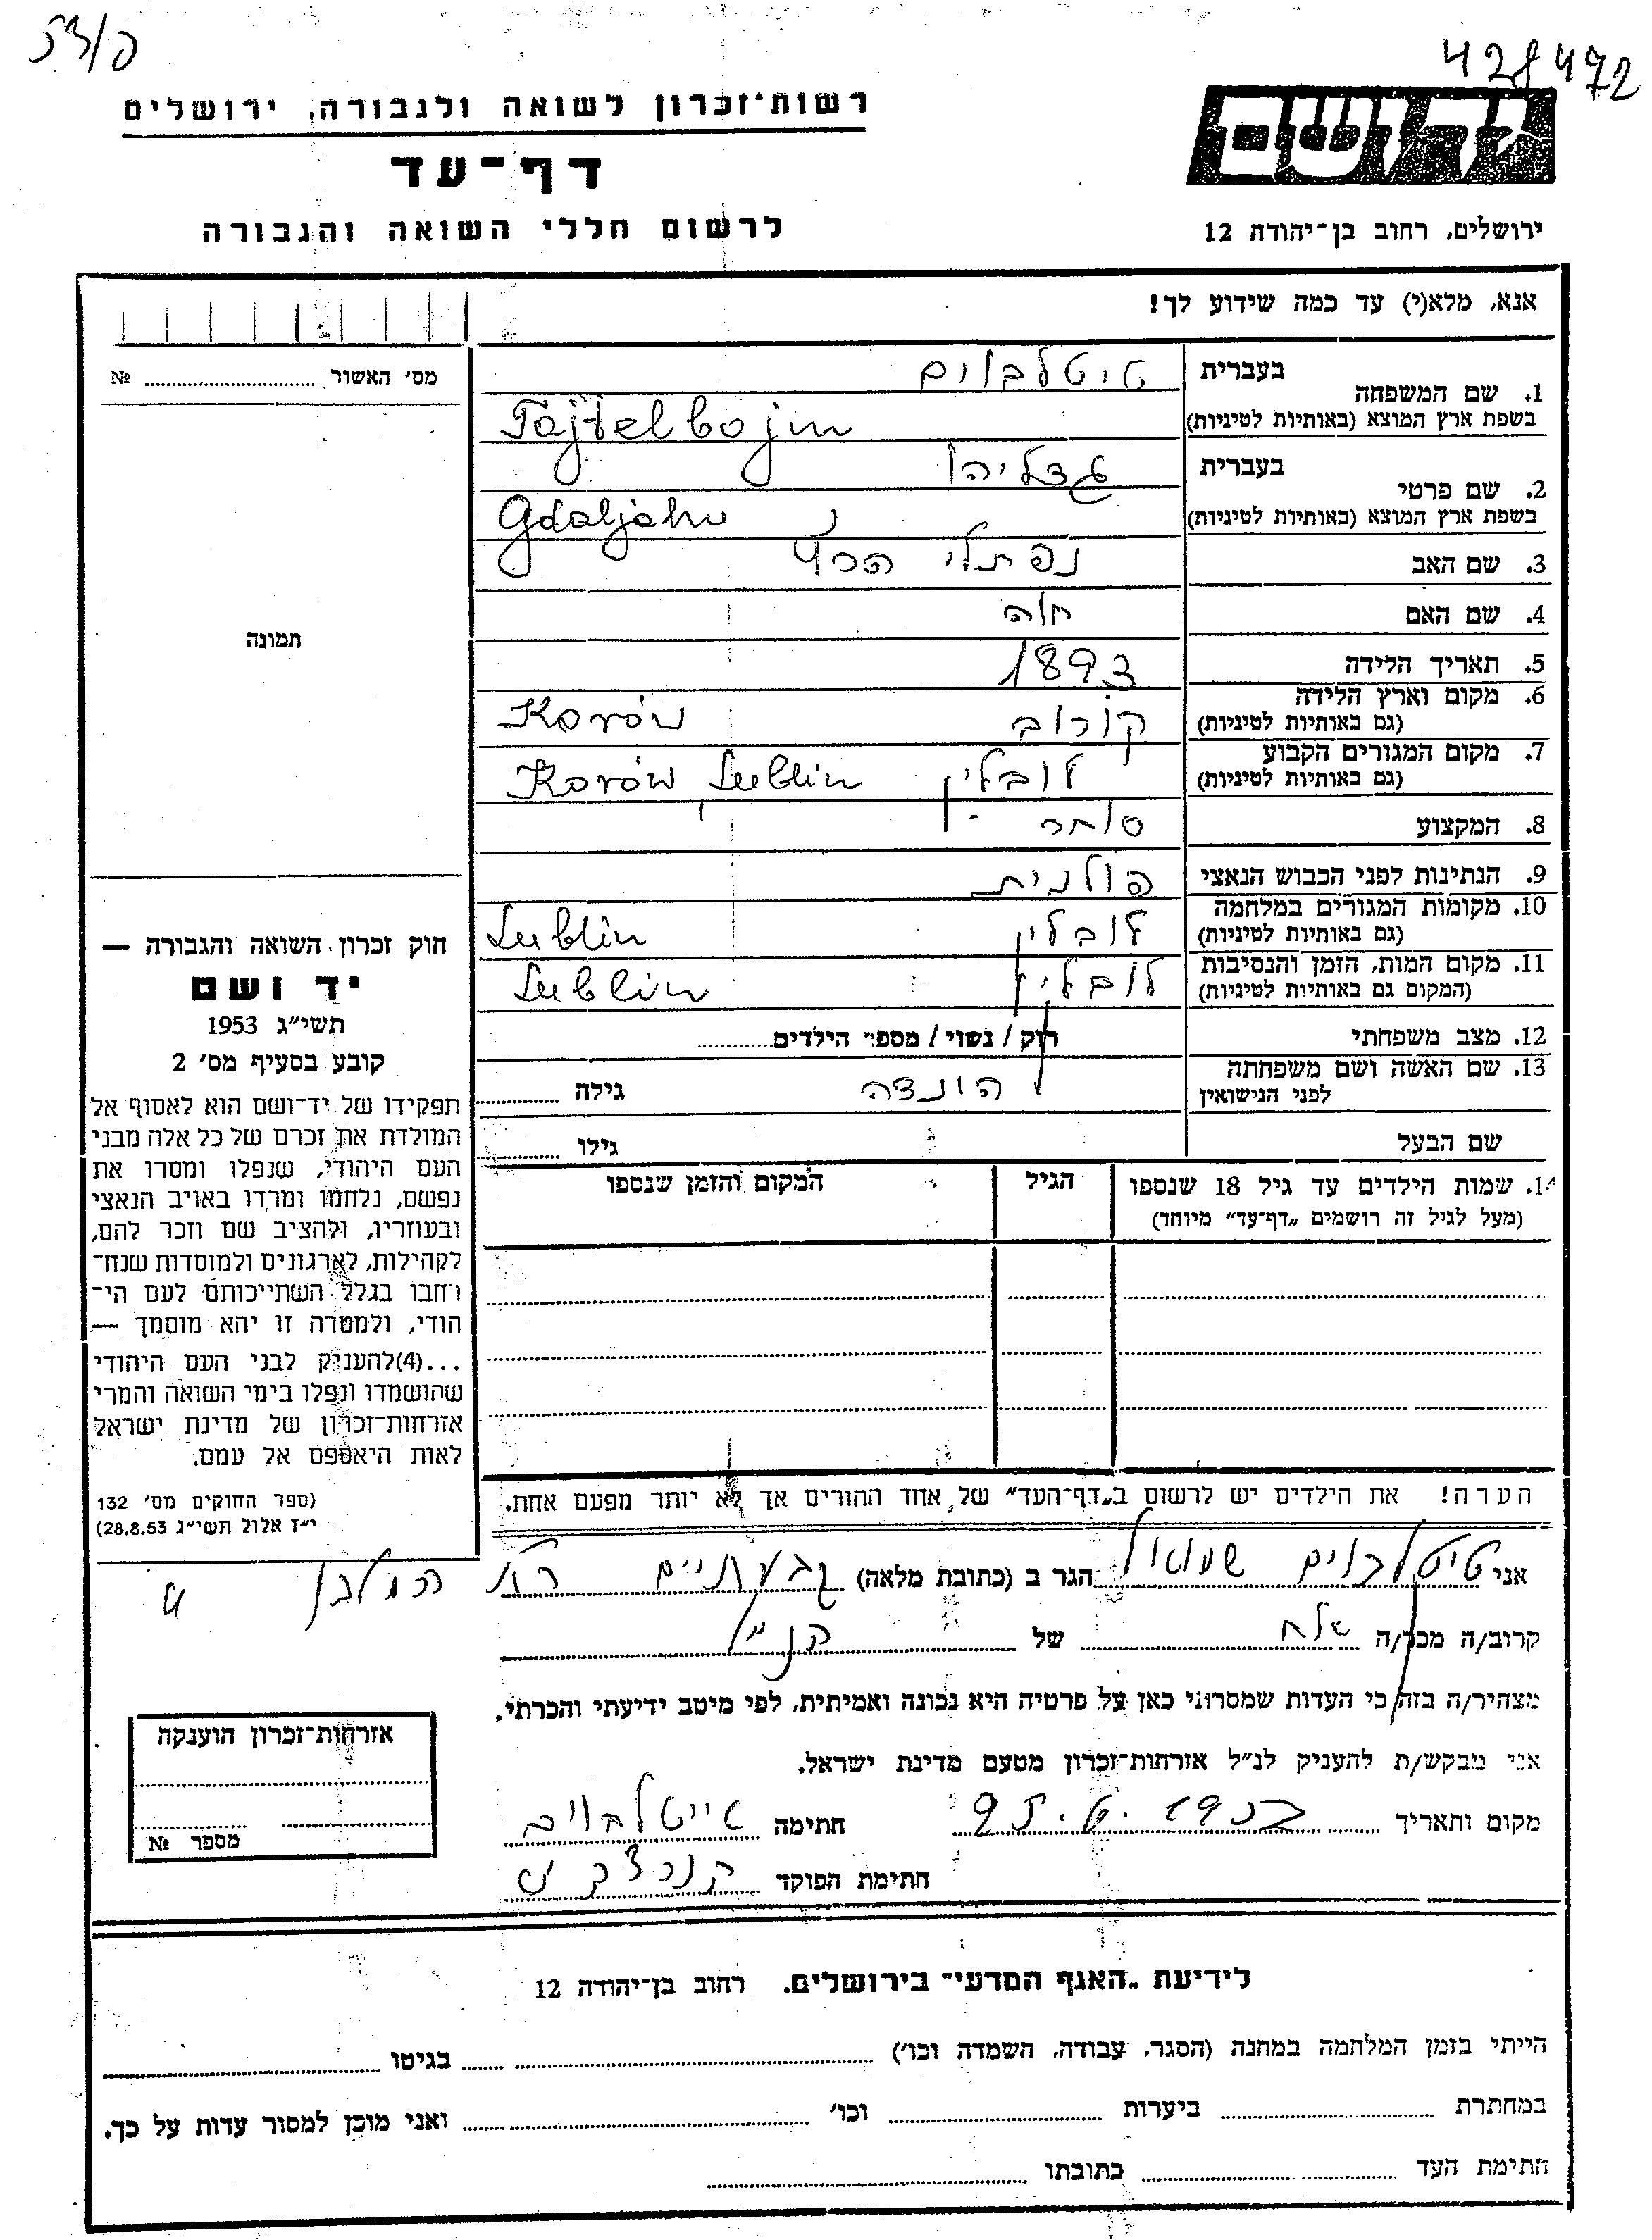 428472
רשות־זכרון לשואה ולגבורה, ירושלים
יד ושם
דף־עד
לרשום חללי השואה והגבורה
ירושלים, רחוב בן־יהודה 12
אנא, מלא(י) עד כמה שידוע לך!
1. שם המשפחה
בעברית טיטלבוים
בשפת ארץ המוצא (באותיות לטיניות) Tajtelbojm
2. שם פרטי
בעברית גדליהו
בשפת ארץ המוצא (באותיות לטיניות) Gdaljahu
3. שם האב נפתלי
4. שם האם חוה
5. תאריך הלידה 1893
6. מקום וארץ הלידה
(גם באותיות לטיניות) קורוב Korów
7. מקום המגורים הקבוע
(גם באותיות לטיניות) לובלין Korów Lublin
8. המקצוע סוחר
9. הנתינות לפני הכבוש הנאצי פולנית
10. מקומות המגורים במלחמה
(גם באותיות לטיניות) לובלין Lublin
11. מקום המות, הזמן והנסיבות
(המקום גם באותיות לטיניות) לובלין Lublin
12. מצב משפחתי רוק / נשוי / מספר הילדים
13. שם האשה ושם משפחתה
לפני הנישואין הונצה גילה
שם הבעל גילו
14. שמות הילדים עד גיל 18 שנספו הגיל המקום והזמן שנספו
(מעל לגיל זה רושמים „דף־עד” מיוחד)
הערה! את הילדים יש לרשום ב„דף־העד” של אחד ההורים אך לא יותר מפעם אחת.
מס׳ האשור №
תמונה
חוק זכרון השואה והגבורה —
יד ושם
תשי״ג 1953
קובע בסעיף מס׳ 2
תפקידו של יד־ושם הוא לאסוף אל
המולדת את זכרם של כל אלה מבני
העם היהודי, שנפלו ומסרו את
נפשם, נלחמו ומרדו באויב הנאצי
ובעוזריו, ולהציב שם וזכר להם,
לקהילות, לארגונים ולמוסדות שנח־
רחבו בגלל השתייכותם לעם הי־
הודי, ולמטרה זו יהא מוסמך —
...(4)להעניק לבני העם היהודי
שהושמדו ונפלו בימי השואה והמרי
אזרחות־זכרון של מדינת ישראל
לאות היאספם אל עמם.
(ספר החוקים מס׳ 132
י״ז אלול תשי״ג 28.8.53)
אני טיטלבוים שמואל הגר ב (כתובת מלאה) גבעתיים
קרוב/ה מכר/ה אח של הנ״ל
מצהיר/ה בזה כי העדות שמסרתי כאן על פרטיה היא נכונה ואמיתית, לפי מיטב ידיעתי והכרתי.
אני מבקש/ת להעניק לנ״ל אזרחות־זכרון מטעם מדינת ישראל.
מקום ותאריך חתימה טייטלבוים
חתימת הפוקד
אזרחות־זכרון הוענקה
מספר №
לידיעת „האגף המדעי־ בירושלים. רחוב בן־יהודה 12
הייתי בזמן המלחמה במחנה (הסגר, עבודה, השמדה וכו׳) בגיטו
במחתרת ביערות וכו׳ ואני מוכן למסור עדות על כך.
חתימת העד כתובתו